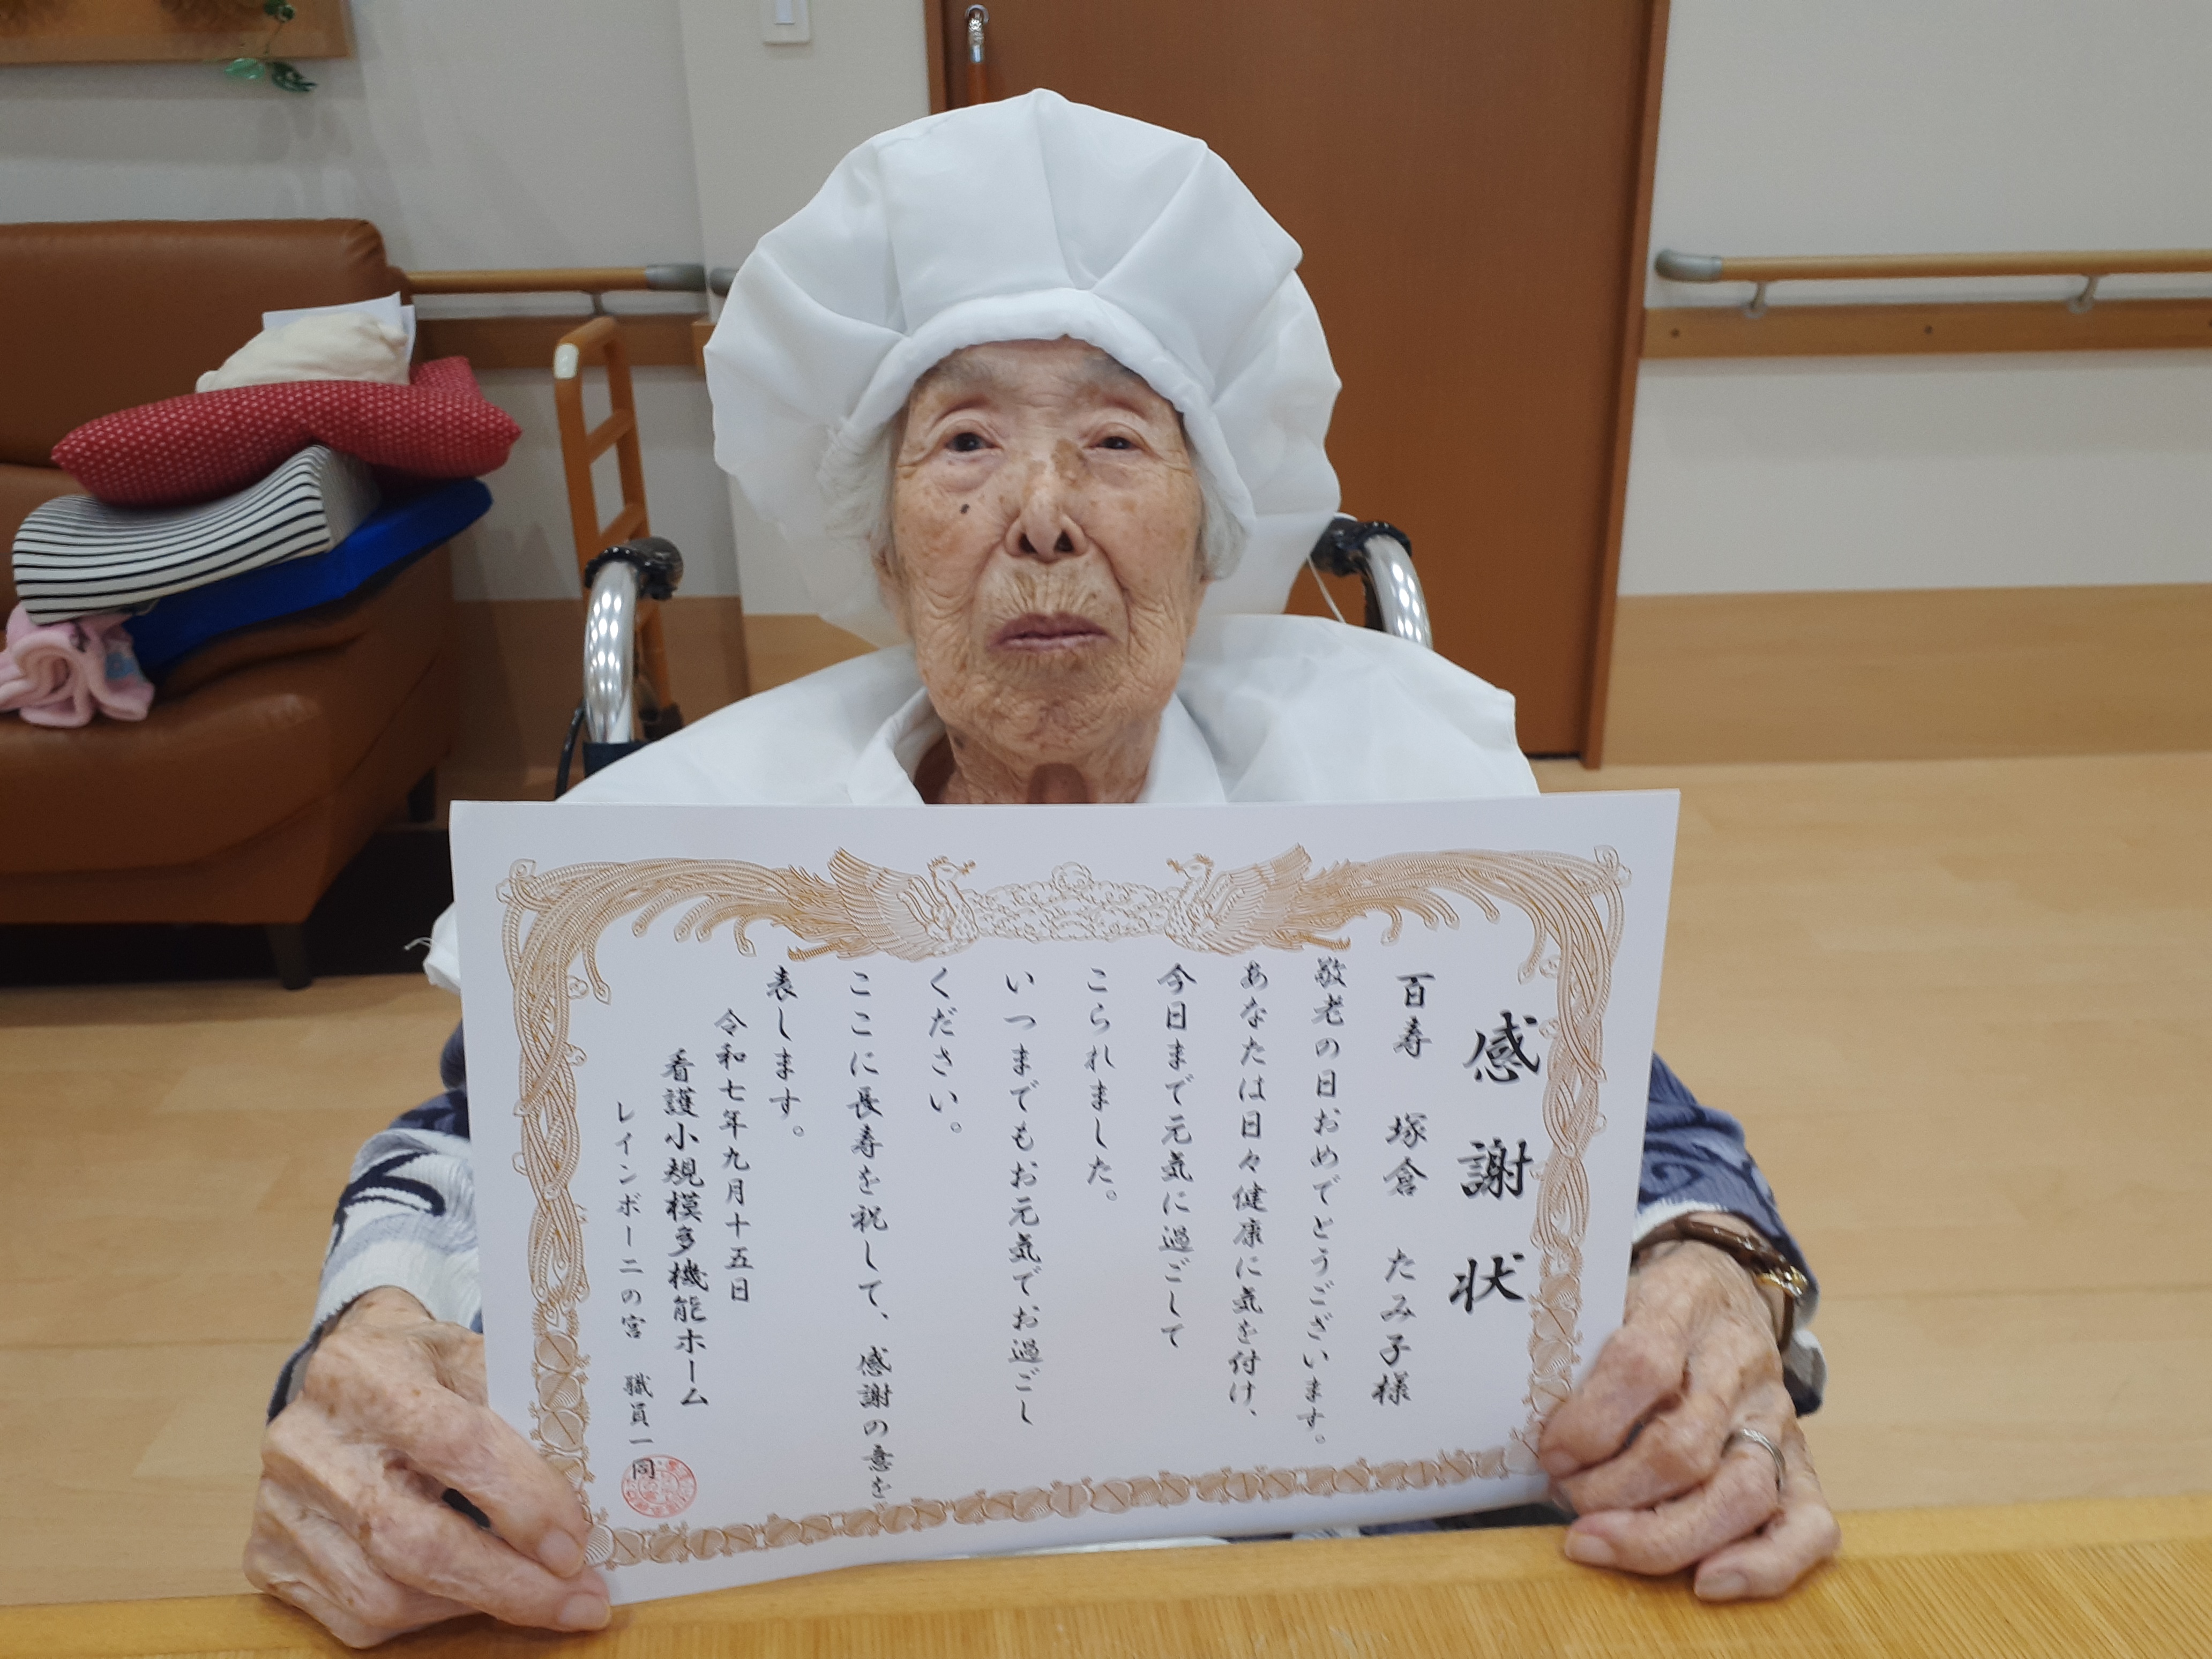 感謝状
百寿　塚倉　たみ子様
敬老の日おめでとうございます。
あなたは日々健康に気を付け、
今日まで元気に過ごして
こられました。
いつまでもお元気でお過ごし
ください。
ここに長寿を祝して、感謝の意を
表します。
令和七年九月十五日
看護小規模多機能ホーム
レインボー二の宮　職員一同